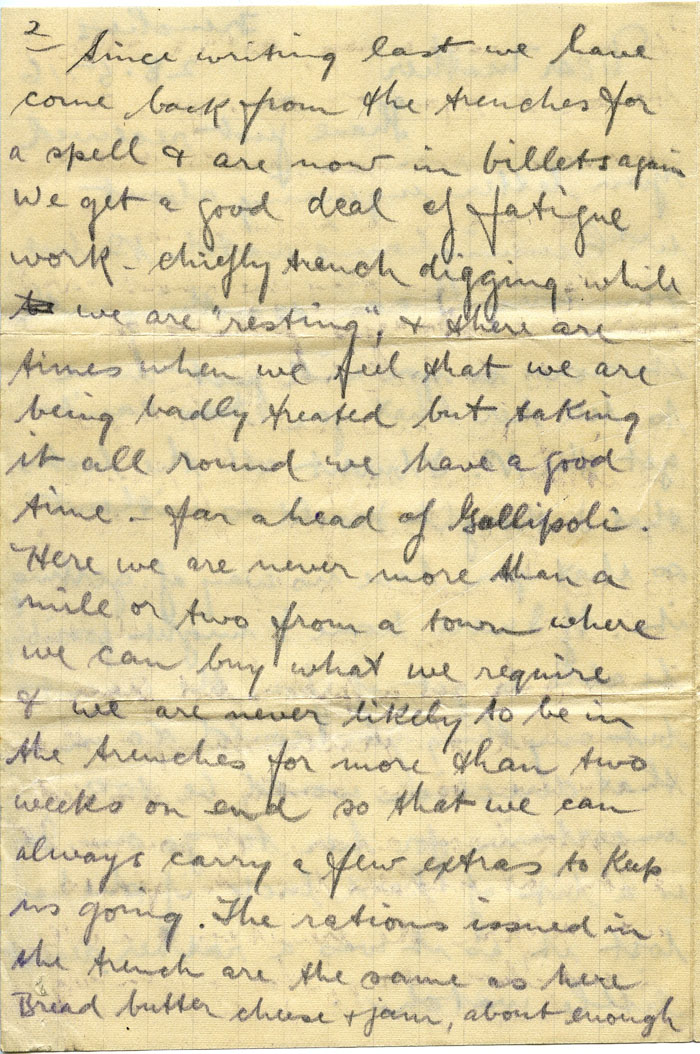 2
Since writing last we have
come back from the trenches for
a spell & are now in billets again
We get a good deal of fatigue
work - chiefly trench digging - while
we are "resting", & there are
times when we feel that we are
being badly treated but taking
it all round we have a good
time - far ahead of Gallipoli.
Here we are never more than a
mile or two from a town where
we can buy what we require
& we are never likely to be in
the trenches for more than two
weeks on end so that we can
always carry a few extras to keep
us going. The rations issued in
the trench are the same as here
Bread butter cheese & jam, about enough